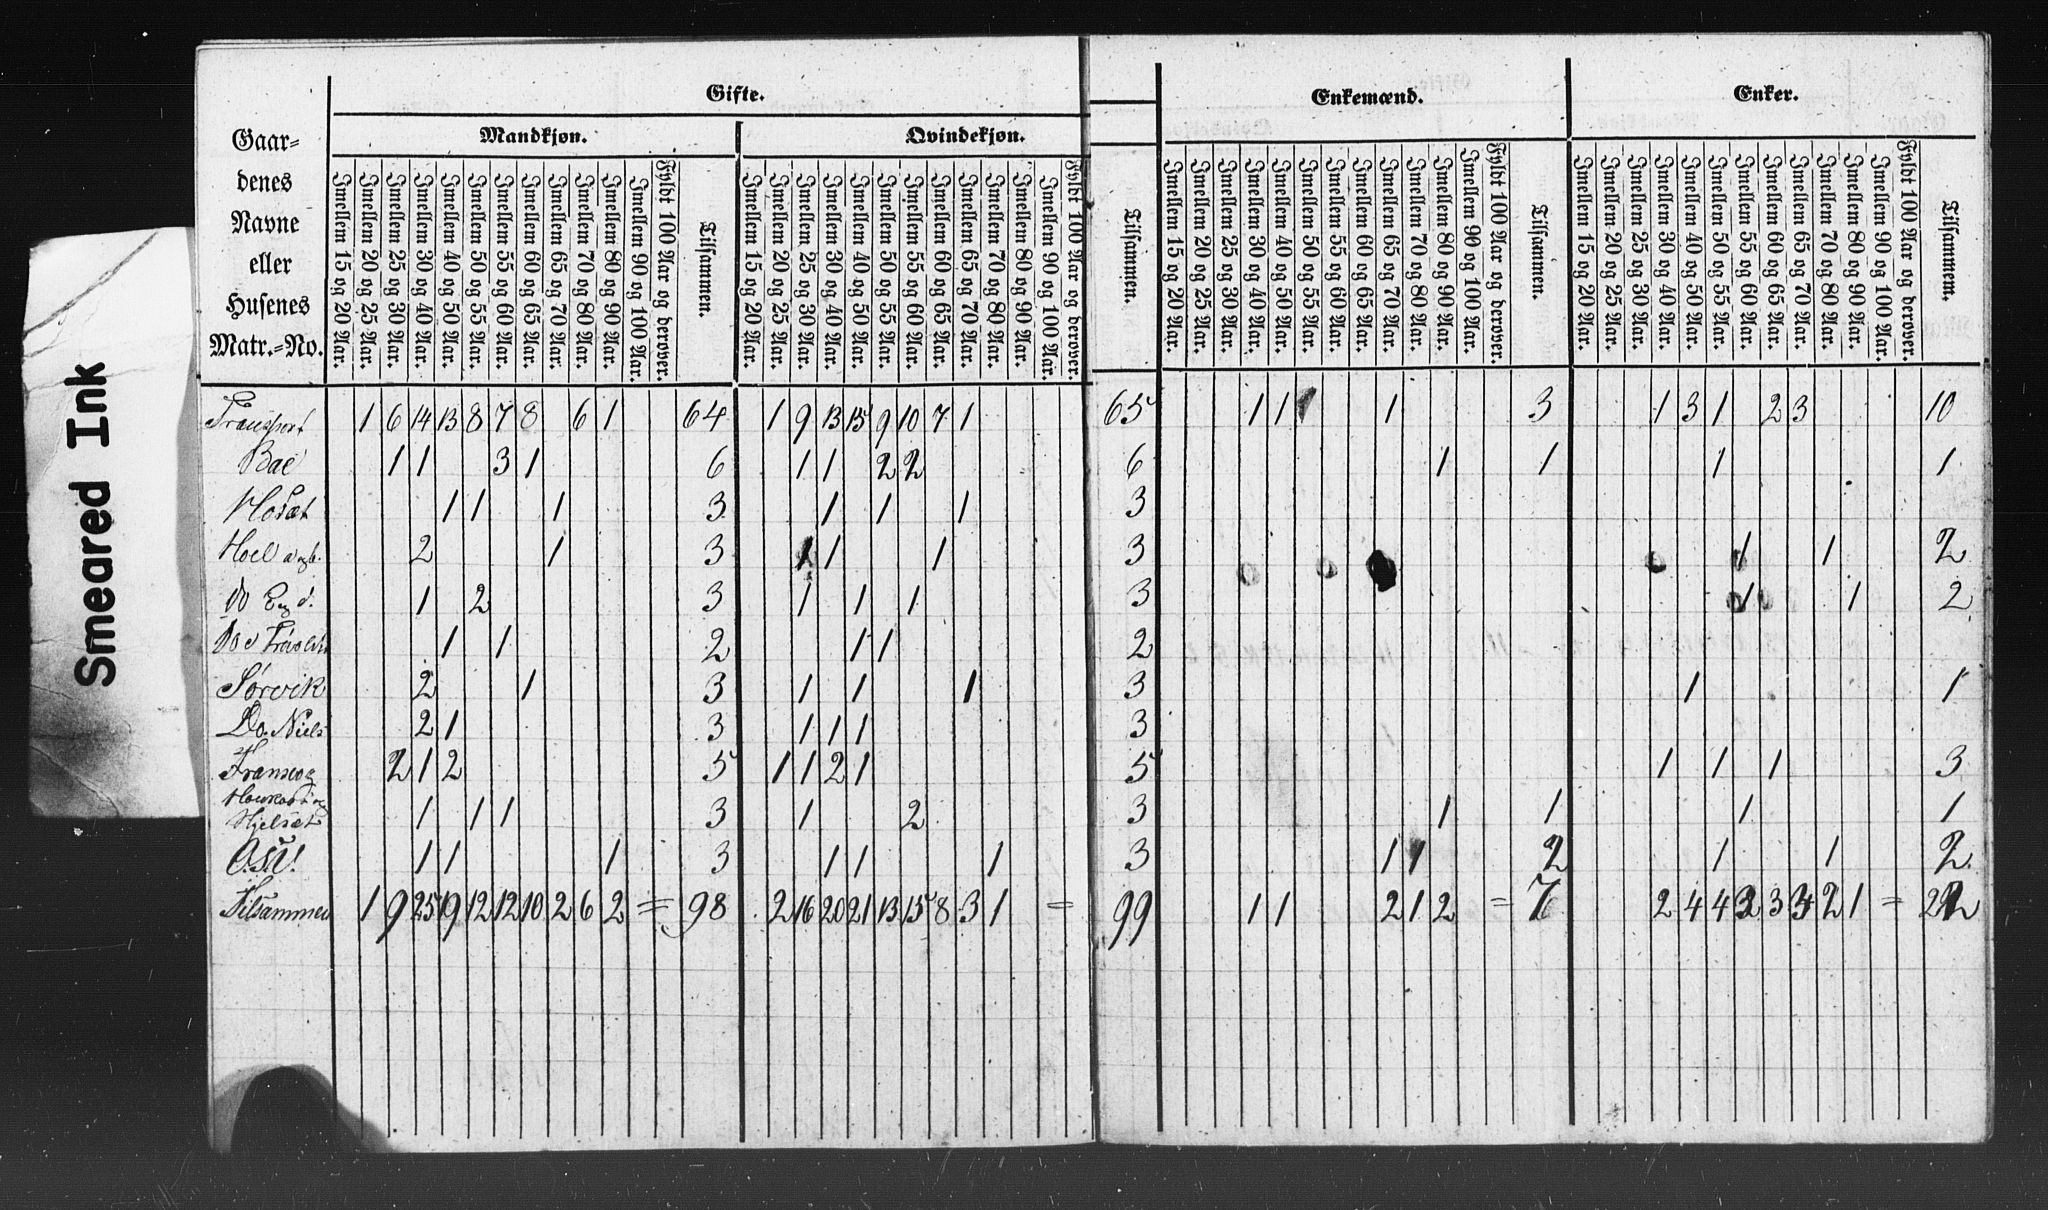 Smeared Ink
Gifte.
Enkemænd.
Enker.
Mandkjøn.
Qvindekjøn.
Gaar=
denes
Navne
eller
Husenes
Matr.=No.
Imellem 15 og 20 Aar.
Imellem 20 og 25 Aar.
Imellem 25 og 30 Aar.
Imellem 30 og 40 Aar.
Imellem 40 og 50 Aar.
Imellem 50 og 55 Aar.
Imellem 55 og 60 Aar.
Imellem 60 og 65 Aar.
Imellem 65 og 70 Aar.
Imellem 70 og 80 Aar.
Imellem 80 og 90 Aar.
Imellem 90 og 100 Aar.
Fyldt 100 Aar og derover.
Tilsammen.
Imellem 15 og 20 Aar.
Imellem 20 og 25 Aar.
Imellem 25 og 30 Aar.
Imellem 30 og 40 Aar.
Imellem 40 og 50 Aar.
Imellem 50 og 55 Aar.
Imellem 55 og 60 Aar.
Imellem 60 og 65 Aar.
Imellem 65 og 70 Aar.
Imellem 70 og 80 Aar.
Imellem 80 og 90 Aar.
Imellem 90 og 100 Aar.
Fyldt 100 Aar og derover.
Tilsammen.
Imellem 15 og 20 Aar.
Imellem 20 og 25 Aar.
Imellem 25 og 30 Aar.
Imellem 30 og 40 Aar.
Imellem 40 og 50 Aar.
Imellem 50 og 55 Aar.
Imellem 55 og 60 Aar.
Imellem 60 og 65 Aar.
Imellem 65 og 70 Aar.
Imellem 70 og 80 Aar.
Imellem 80 og 90 Aar.
Imellem 90 og 100 Aar.
Fyldt 100 Aar og derover.
Tilsammen.
Imellem 15 og 20 Aar.
Imellem 20 og 25 Aar.
Imellem 25 og 30 Aar.
Imellem 30 og 40 Aar.
Imellem 40 og 50 Aar.
Imellem 50 og 55 Aar.
Imellem 55 og 60 Aar.
Imellem 60 og 65 Aar.
Imellem 65 og 70 Aar.
Imellem 70 og 80 Aar.
Imellem 80 og 90 Aar.
Imellem 90 og 100 Aar.
Fyldt 100 Aar og derover.
Tilsammem.
Transport 1 6 14 13 8 7 8 6 1 64 1 9 13 15 9 10 7 1 65 1 1 1 3 1 3 1 2 3 10
Bae 1 1 3 1 6 1 1 2 2 6 1 1 1 1
Hosæt 1 1 1 3 1 1 1 3
Hoel 2 1 3 1 1 1 3 1 1 2
Do 1 2 3 1 1 1 3 1 1 2
Do 1 1 2 1 1 2
Sørvik 2 1 3 1 1 1 3 1 1
Do. Niels 2 1 3 1 1 1 3
2 1 2 5 1 1 2 1 5 1 1 1 3
Hjelset 1 1 1 3 1 2 3 1 1 1 1
1 1 1 3 1 1 1 3 1 1 2 1 1 2
Tilsammen 1 9 25 19 12 12 10 2 6 2 = 98 2 16 20 21 13 15 8 3 1 = 99 1 1 2 1 2 = 7 2 4 4 3 3 3 2 1 = 22